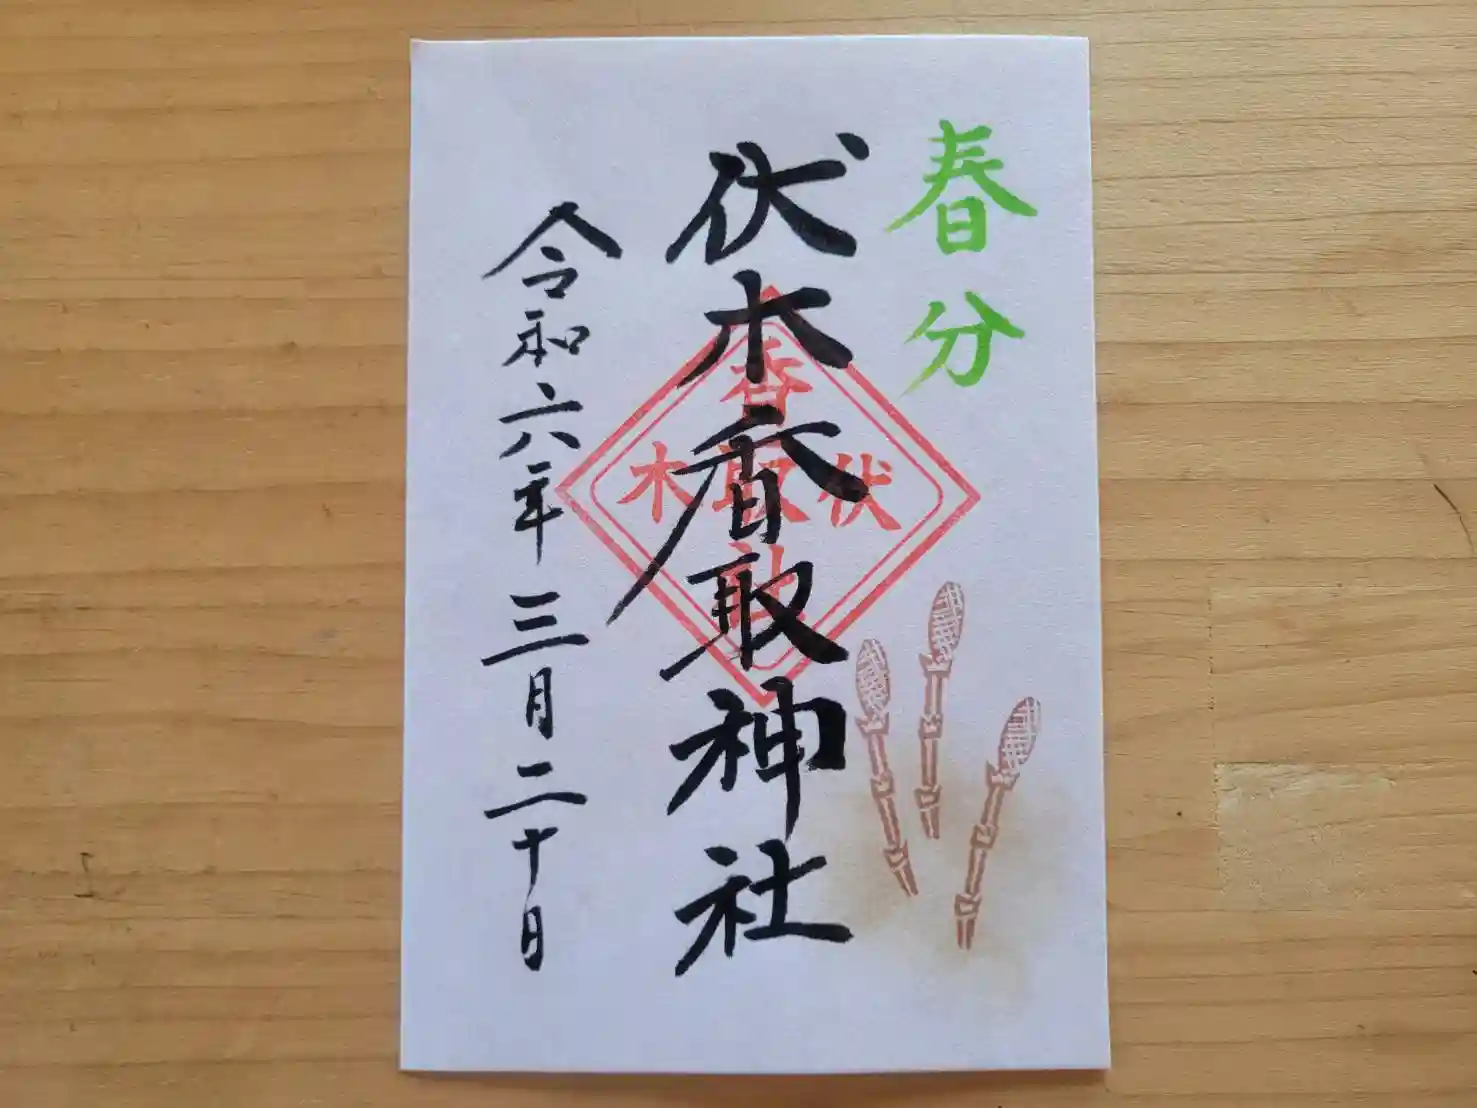 春分
伏木香取神社
令和六年三月二十日
香
伏取木